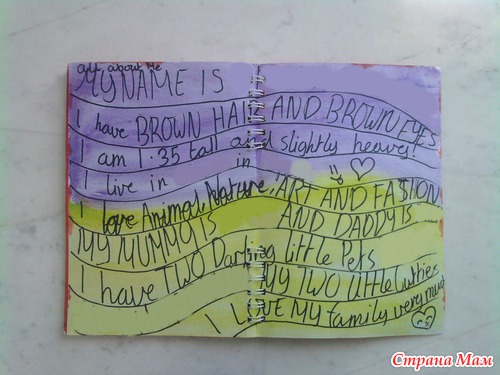 all about me
MY NAME IS
I have BROWN HAIR AND BROWN EYES
I am 1.35 tall and slightly heavey!
I live in in
I love Animal, Nature, ART AND FASHION
MY MUMMY IS AND DADDY IS
I have TWO Darling little Pets
MY TWO little Cutties
I LOVE MY family very much
Страна Мам